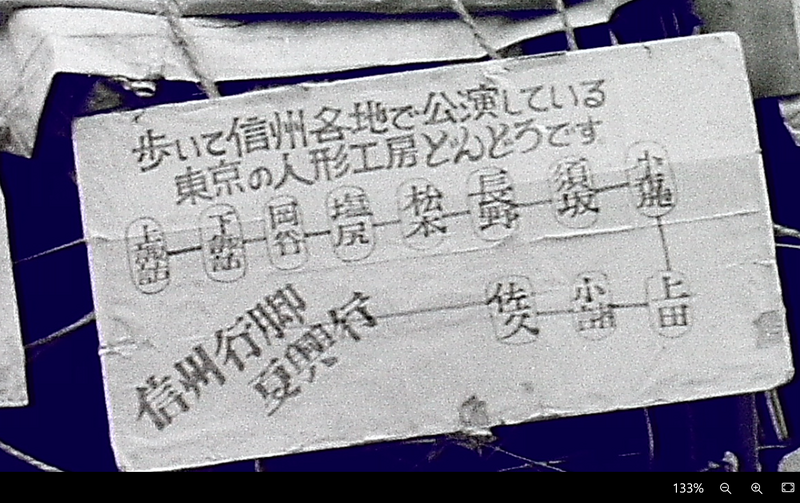 歩いて信州各地で公演している
東京の人形工房どんどろです
上諏訪 下諏訪 岡谷 塩尻 松本 長野 須坂 小布施
佐久 小諸 上田
信州行脚
夏興行
133%